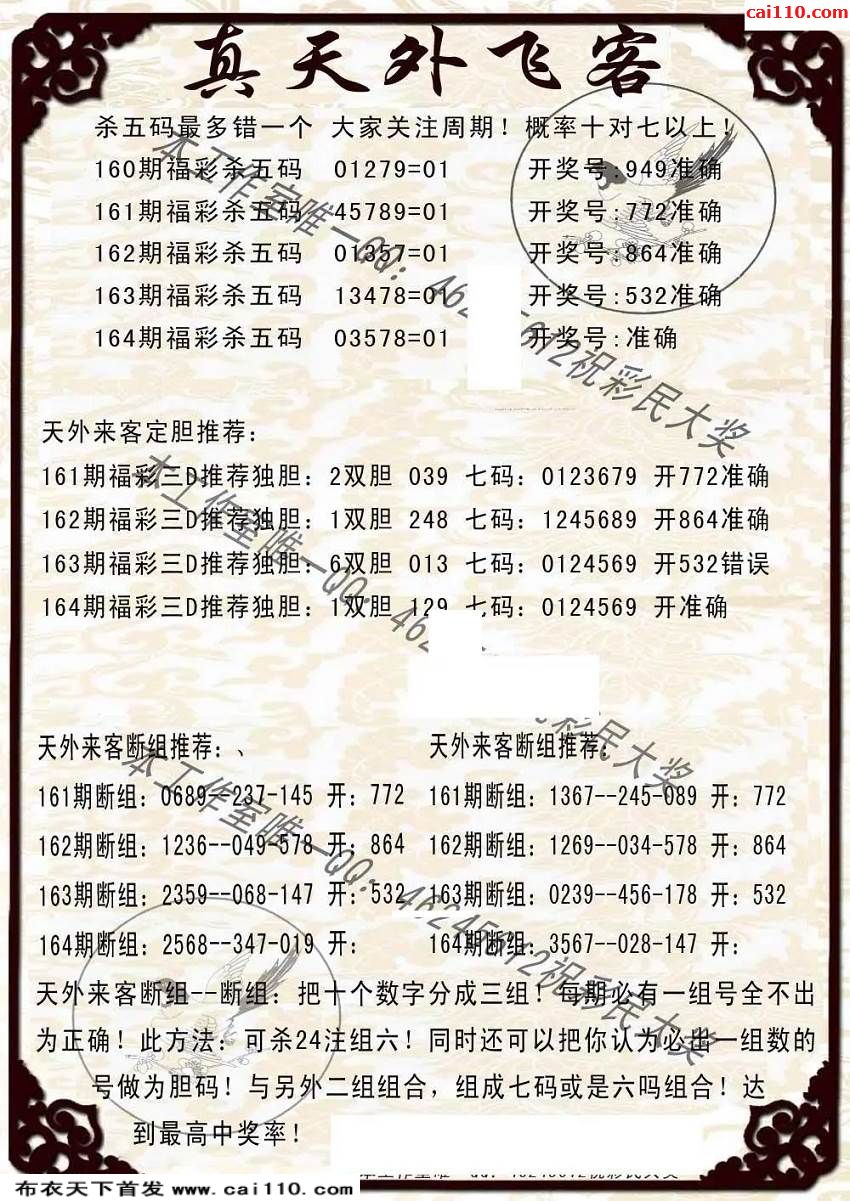 cai110.com
真天外飞客
杀五码最多错一个 大家关注周期！概率十对七以上！
160期福彩杀五码 01279=01 开奖号:949准确
161期福彩杀五码 45789=01 开奖号:772准确
162期福彩杀五码 01357=01 开奖号:864准确
163期福彩杀五码 13478=01 开奖号:532准确
164期福彩杀五码 03578=01 开奖号:准确
本工作室唯一QQ：462
612祝彩民大奖
天外来客定胆推荐：
161期福彩三D推荐独胆：2双胆 039 七码：0123679 开772准确
162期福彩三D推荐独胆：1双胆 248 七码：1245689 开864准确
163期福彩三D推荐独胆：6双胆 013 七码：0124569 开532错误
164期福彩三D推荐独胆：1双胆 129 七码：0124569 开准确
本工作室唯一QQ：462
彩民大奖
天外来客断组推荐：、 天外来客断组推荐：
161期断组：0689--237-145 开：772 161期断组：1367--245-089 开：772
162期断组：1236--049-578 开：864 162期断组：1269--034-578 开：864
163期断组：2359--068-147 开：532 163期断组：0239--456-178 开：532
164期断组：2568--347-019 开： 164期断组：3567--028-147 开：
本工作室唯一QQ：46245612祝彩民大奖
天外来客断组--断组：把十个数字分成三组！每期必有一组号全不出
为正确！此方法：可杀24注组六！同时还可以把你认为必出一组数的
号做为胆码！与另外二组组合，组成七码或是六吗组合！达
到最高中奖率！
布衣天下首发 www.cai110.com